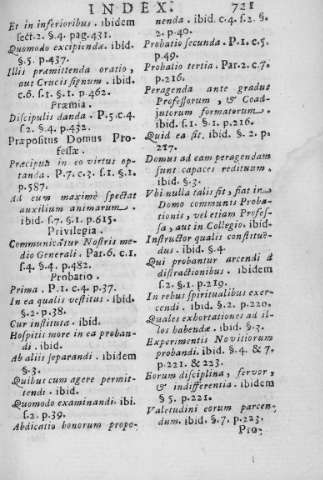 INDEX. 721
Et in inferioribus. ibidem
sect.2. §.4. pag.431.
Quomodo excipienda. ibid.
§.5. p.437.
Illi præmittenda oratio,
aut Crucis signum. ibid.
c.6. s.1. §.1. p 462.
Præmia.
Discipulis danda. P.5.c.4.
s.2. §.4. p.432.
Præpositus Domus Pro-
fessæ.
Præcipuè in eo virtus op-
tanda. P.7. c.3. s.1. §.1.
p.587.
Ad eum maximè spectat
auxilium animarum.
ibid. s.7. §.1. p.615.
Privilegia.
Communicātur Nostris me-
dio Generali. Par.6. c.1.
s.4. §.4. p.482.
Probatio.
Prima. P.1. c.4. p.37.
In ea qualis vestitus. ibid.
§.2. p.38.
Cur instituta. ibid.
Hospitis more in ea proban-
di. ibid.
Ab aliis separandi. ibidem
§.3.
Quibus cum agere permit-
tendi. ibid.
Quomodo examinandi. ibi.
s.2. p.39.
Abdicatio bonorum propo-
nenda. ibid. c.4. s.2. §.
2. p.40.
Probatio secunda. P.1. c.5.
p.49.
Probatio tertia. Par.2. c.7.
p.216.
Peragenda ante gradus
Professorum, & Coad-
jutorum formatorum.
ibid. s.1. §.1. p.216.
Quid ea sit. ibid. §.2. p.
217.
Domus ad eam peragendam
sunt capaces redituum,
ibid. §.3.
Vbi nulla talis sit, fiat in
Domo communis Proba-
tionis, vel etiam Profes-
sa, aut in Collegio. ibid.
Instructor qualis constituē-
dus. ibid. §.4
Qui probantur arcendi à
distractionibus. ibidem
s.2. §.1. p.219.
In rebus spiritualibus exer-
cendi. ibid. §.2. p.220.
Quales exhortationes ad il-
los habendæ. ibid. §.3.
Experimentis Novitiorum
probandi. ibid. §.4. & 7.
p.221. & 223.
Eorum disciplina, fervor,
& indifferentia. ibidem
§ 5. p.221.
Valetudini eorum parcen-
dum. ibid. §.7. p.223.
Pro-